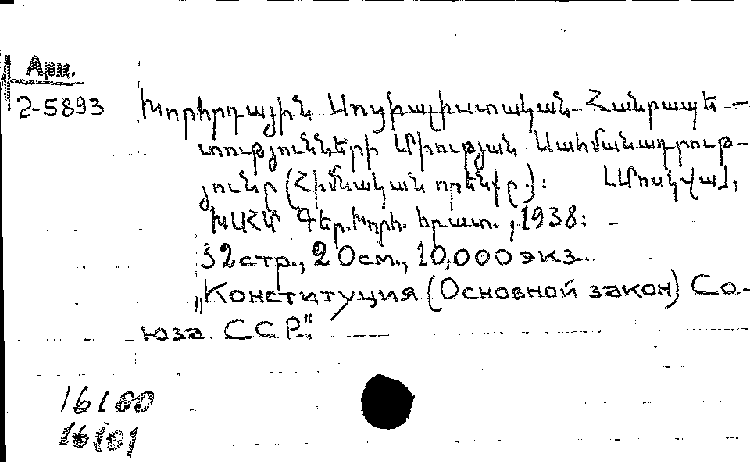 Арм.
2-5893
Խորհրդային Սոցիալիստական Հանրապե-
տությունների Միության Սահմանադրութ-
յունը (Հիմնական օրենքը): [Մոսկվա],
ԽՍՀՄ Գեր. Խորհ. հրատ., 1938:
32 стр., 20 см., 10,000 экз.
„Конституция (Основной закон) Со-
юза ССР."
16100
16101